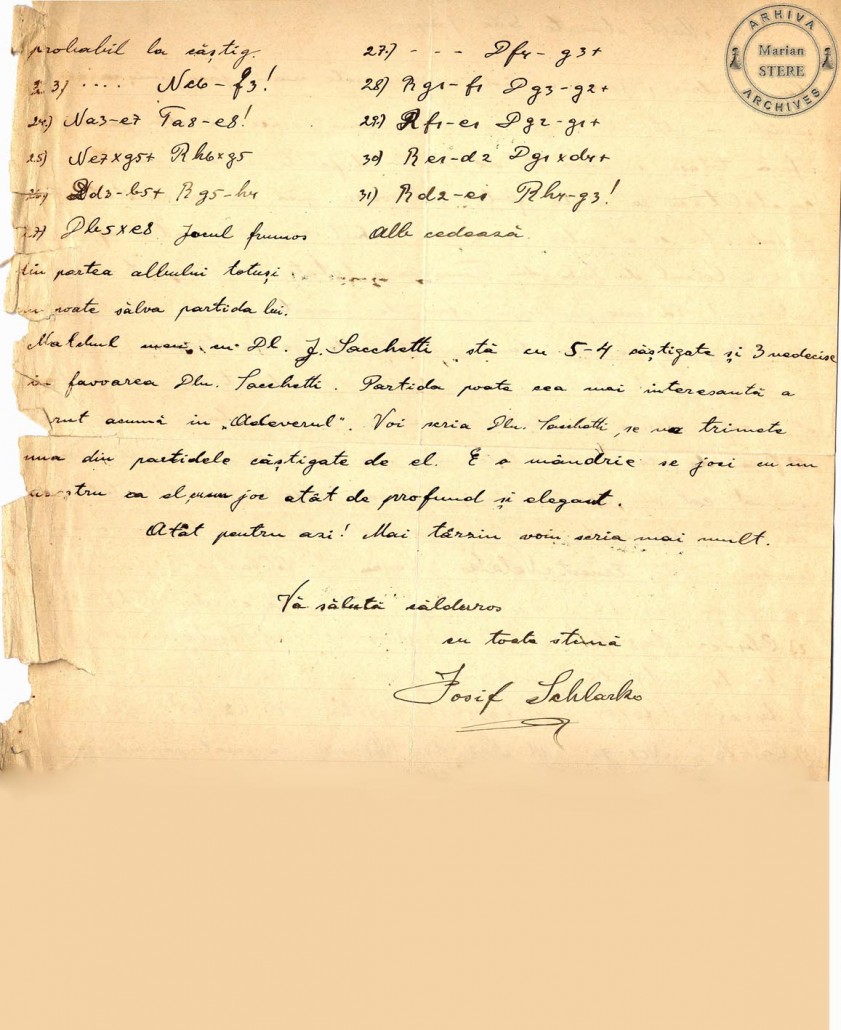 probabil la câștig.
23) .... Neb-f3!
24) Na3-e7 Ta8-e8!
25) Ne7xg5+ Rh6xg5
Dd3-b5+ Rg5-h4
27) Db5xe8 Jocul frumos
din partea albului totuși
poate sălva partida lui.
27.) - - - Df4-g3+
28) Rg1-f1 Dg3-g2+
29) Rf1-e1 Dg2-g1+
30) Re1-d2 Dg1xd4+
31) Rd2-e1 Rh4-g3!
Alb cedează
Matchul meu cu Dl. J. Sacchetti stă cu 5-4 câștigate și 3 nedecise
in favoarea Dlu. Sacchetti. Partida poate cea mai interesantă a
acumă in „Adeverul". Voi scria Dlu. Sacchetti, se va trimete
una din partidele câștigate de el. E o mândrie se joci cu un
ca el, joc atât de profund și elegant.
Atât pentru azi! Mai târziu voiu scria mai mult.
Vă sălută călduros
cu toata stimă
Josif Schlarko
ARHIVA
Marian
STERE
ARCHIVES